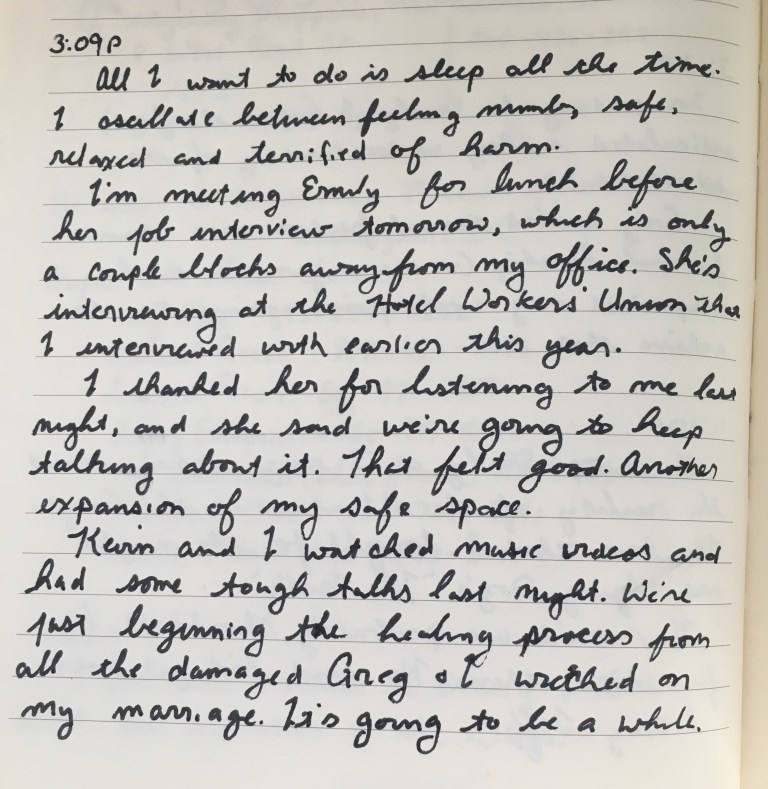 3:09p
All I want to do is sleep all the time.
I oscillate between feeling numb, safe,
relaxed and terrified of harm.
I'm meeting Emily for lunch before
her job interview tomorrow, which is only
a couple blocks away from my office. She's
interviewing at the Hotel Workers' Union that
I interviewed with earlier this year.
I thanked her for listening to me last
night, and she said we're going to keep
talking about it. That felt good. Another
expansion of my safe space.
Kevin and I watched music videos and
had some tough talks last night. We're
just beginning the healing process from
all the damaged Greg & I wretched on
my marriage. It's going to be a while.